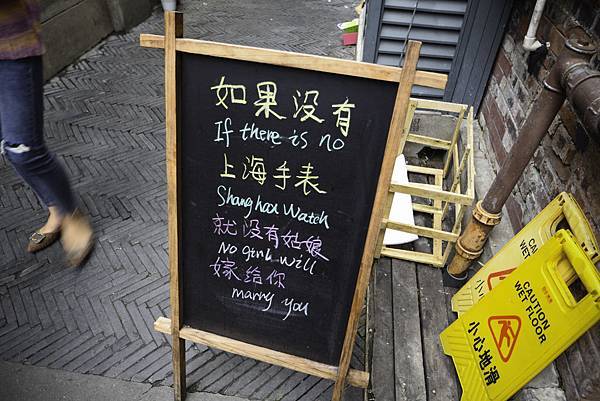 如果没有
If there is no
上海手表
Shanghai Watch
就没有姑娘
No girl will
嫁给你
marry you
CAUTION
WET FLOOR
小心地滑
CAUTION
WET FLOOR